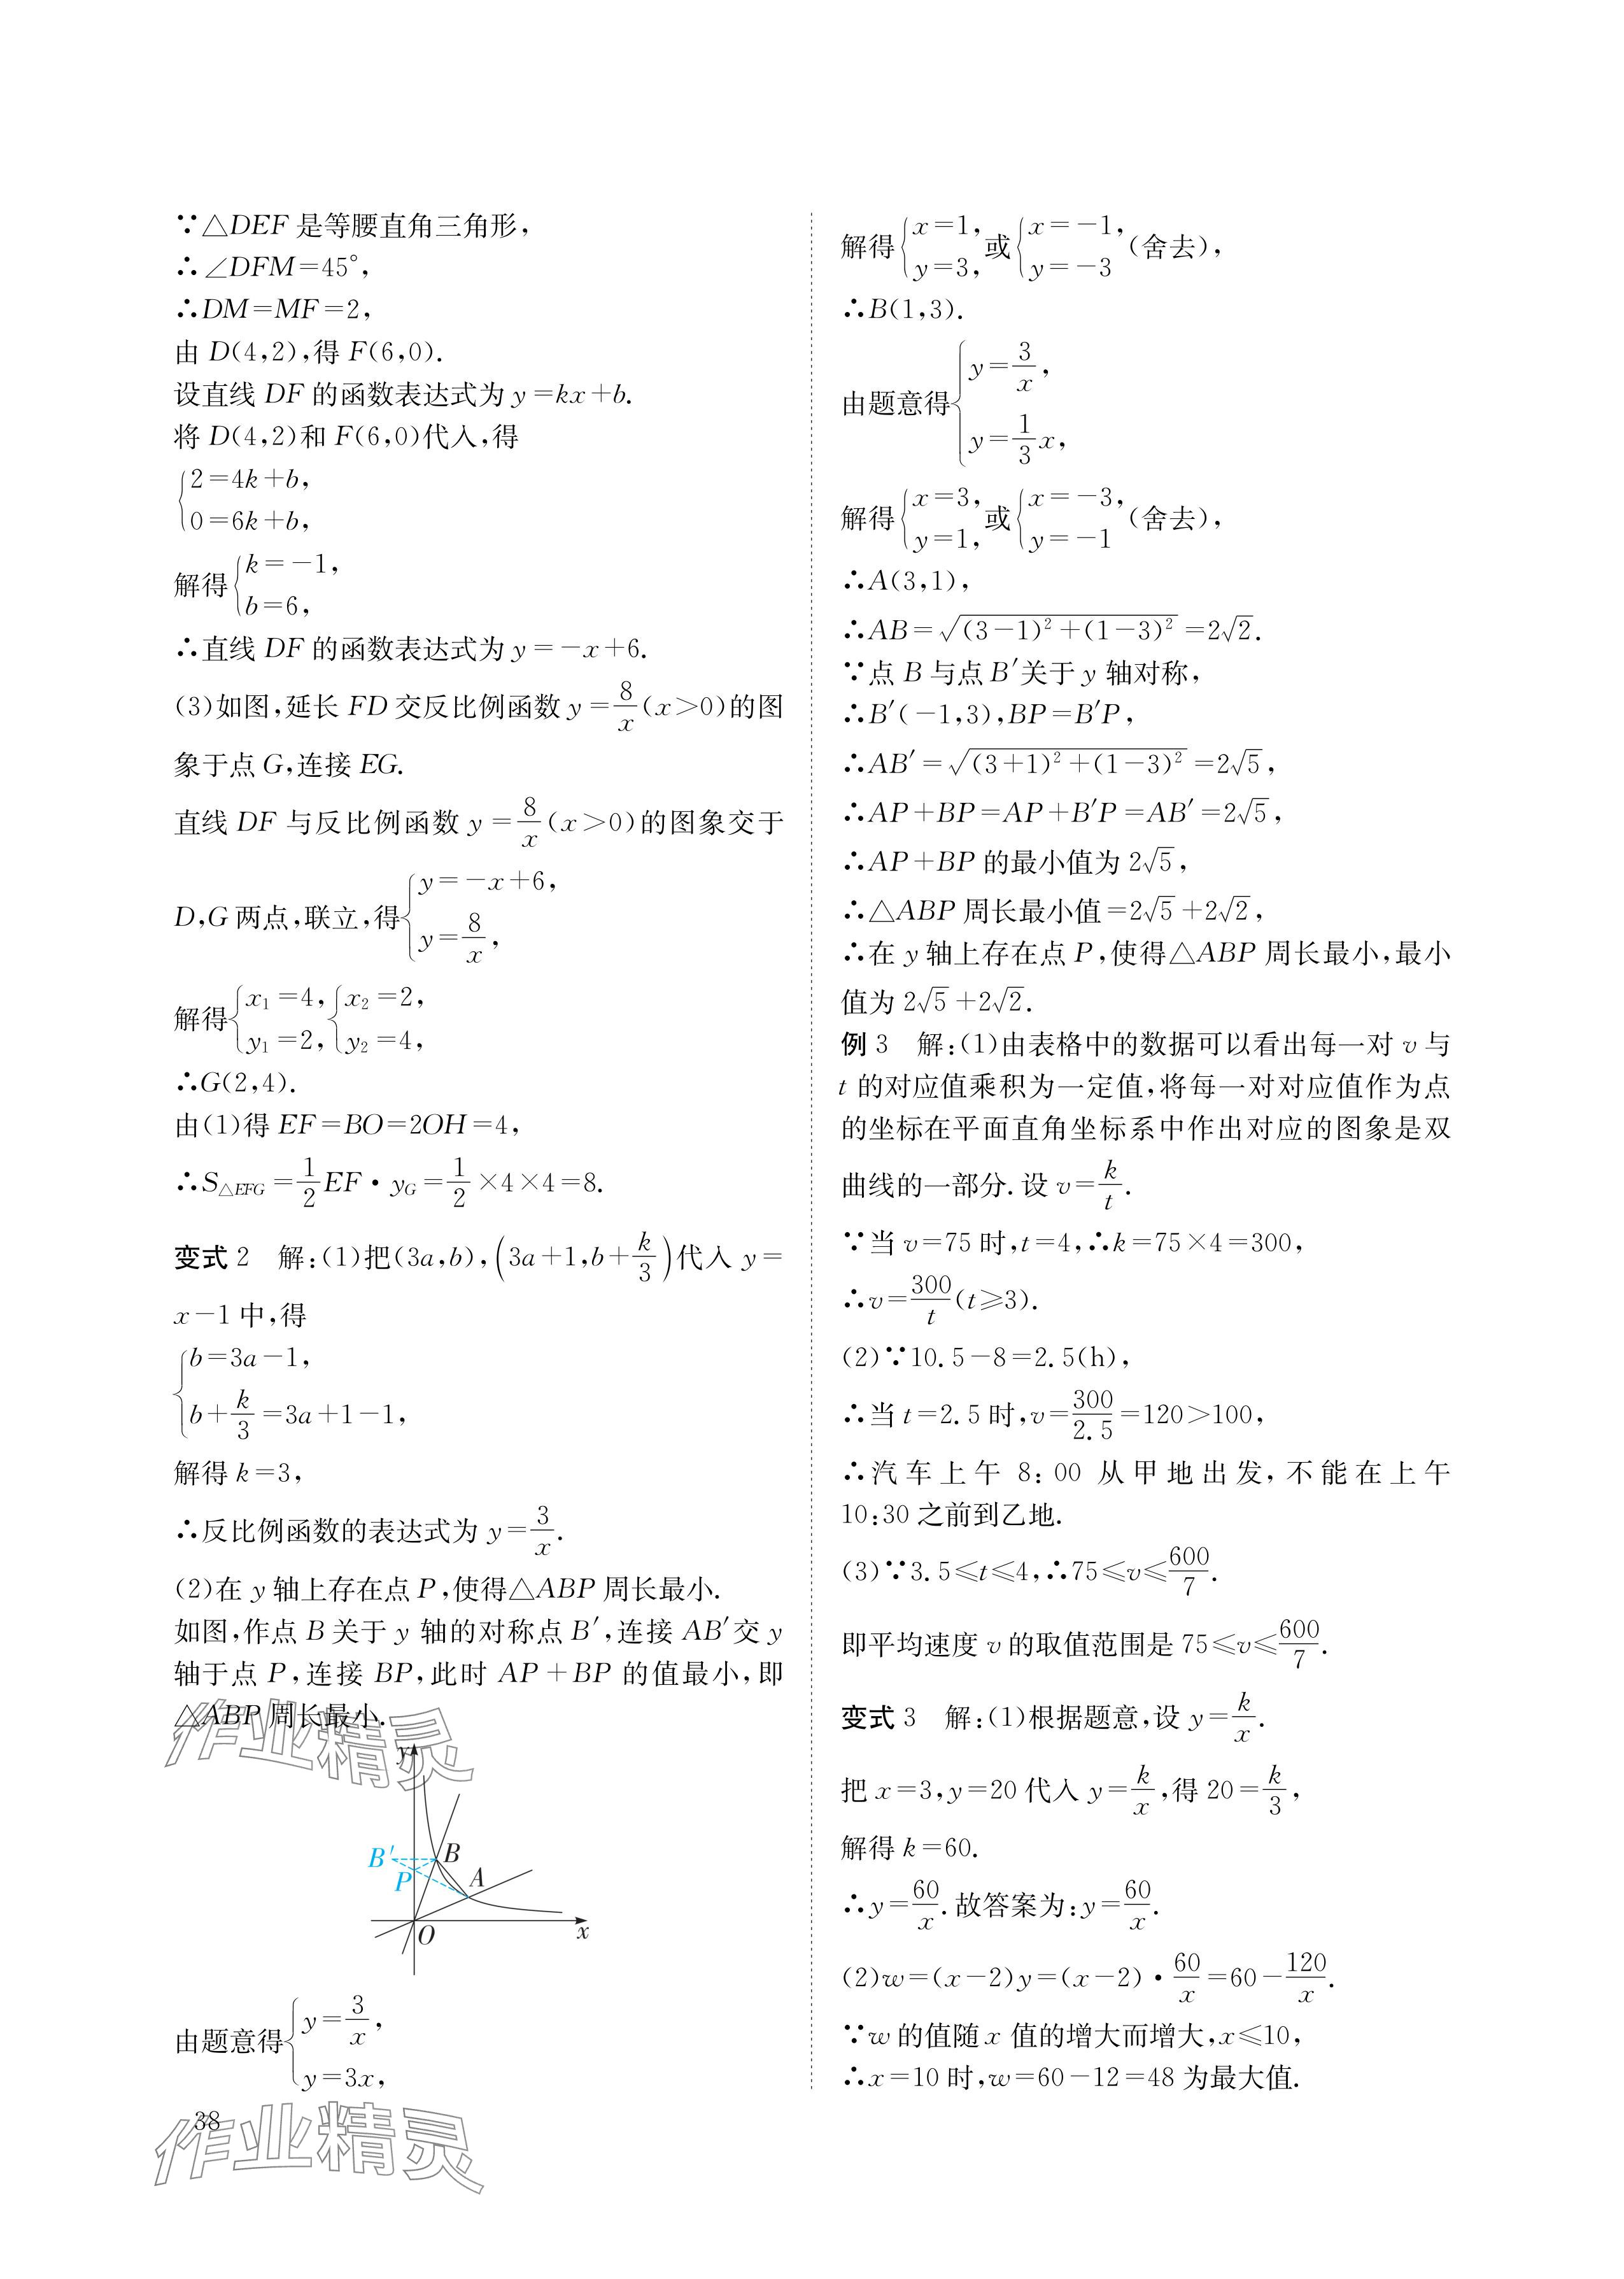 ∵△DEF是等腰直角三角形,
∴∠DFM=45°,
∴DM=MF=2,
由 D(4,2),得 F(6,0).
设直线 DF 的函数表达式为 y=kx+b.
将 D(4,2)和 F(6,0)代入,得
{2=4k+b,
0=6k+b,
解得{k=-1,
b=6,
∴直线 DF 的函数表达式为 y=-x+6.
(3)如图,延长 FD 交反比例函数 y=8/x(x>0)的图
象于点 G,连接 EG.
直线 DF 与反比例函数 y=8/x(x>0)的图象交于
D,G 两点,联立,得{y=-x+6,
y=8/x,
解得{x₁=4, {x₂=2,
y₁=2, y₂=4,
∴G(2,4).
由(1)得 EF=BO=2OH=4,
∴S△EFG=1/2 EF·yG=1/2×4×4=8.
变式 2 解:(1)把(3a,b),(3a+1,b+k/3)代入 y=
x-1 中,得
{b=3a-1,
b+k/3=3a+1-1,
解得 k=3,
∴反比例函数的表达式为 y=3/x.
(2)在 y 轴上存在点 P,使得△ABP 周长最小.
如图,作点 B 关于 y 轴的对称点 B′,连接 AB′交 y
轴于点 P,连接 BP,此时 AP+BP 的值最小,即
△ABP 周长最小.
y
B′
B
P
A
O
x
由题意得{y=3/x,
y=3x,
38
解得{x=1, 或{x=-1, (舍去),
y=3, y=-3
∴B(1,3).
由题意得{y=3/x,
y=1/3 x,
解得{x=3, 或{x=-3, (舍去),
y=1, y=-1
∴A(3,1),
∴AB=√((3-1)²+(1-3)²)=2√2.
∵点 B 与点 B′关于 y 轴对称,
∴B′(-1,3),BP=B′P,
∴AB′=√((3+1)²+(1-3)²)=2√5,
∴AP+BP=AP+B′P=AB′=2√5,
∴AP+BP 的最小值为 2√5,
∴△ABP 周长最小值=2√5+2√2,
∴在 y 轴上存在点 P,使得△ABP 周长最小,最小
值为 2√5+2√2.
例 3 解:(1)由表格中的数据可以看出每一对 v 与
t 的对应值乘积为一定值,将每一对对应值作为点
的坐标在平面直角坐标系中作出对应的图象是双
曲线的一部分.设 v=k/t.
∵当 v=75 时,t=4,∴k=75×4=300,
∴v=300/t(t≥3).
(2)∵10.5-8=2.5(h),
∴当 t=2.5 时,v=300/2.5=120>100,
∴汽车上午 8:00 从甲地出发,不能在上午
10:30 之前到乙地.
(3)∵3.5≤t≤4,∴75≤v≤600/7.
即平均速度 v 的取值范围是 75≤v≤600/7.
变式 3 解:(1)根据题意,设 y=k/x.
把 x=3,y=20 代入 y=k/x,得 20=k/3,
解得 k=60.
∴y=60/x.故答案为:y=60/x.
(2)w=(x-2)y=(x-2)·60/x=60-120/x.
∵w 的值随 x 值的增大而增大,x≤10,
∴x=10 时,w=60-12=48 为最大值.
作业精灵
作业精灵